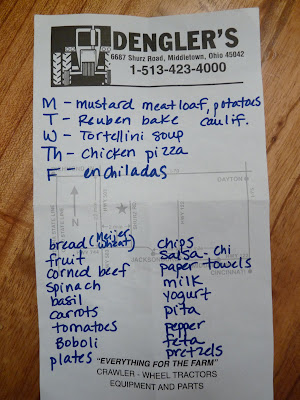 DENGLER'S
6667 Shurz Road, Middletown, Ohio 45042
1-513-423-4000
M - mustard meatloaf, potatoes
T - Reuben bake caulif.
W - Tortellini soup
Th - Chicken pizza
F - enchiladas
DAYTON
bread (Meijer wheat)
fruit
corned beef
spinach
basil
carrots
tomatoes
Boboli
plates
chips
salsa - chi
paper towels
milk
yogurt
pita
pepper
feta
pretzels
"EVERYTHING FOR THE FARM"
CRAWLER - WHEEL TRACTORS
EQUIPMENT AND PARTS